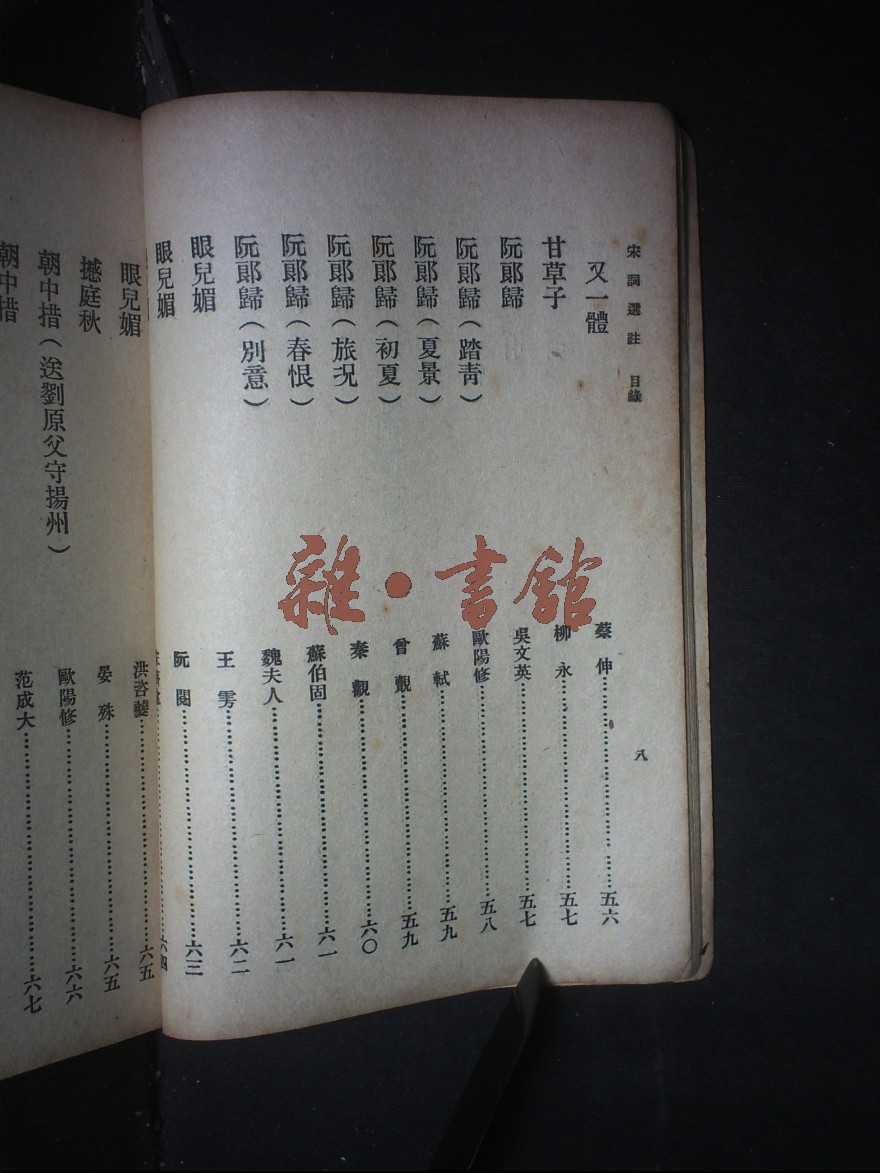 宋詞選註 目錄 八
又一體 蔡伸……五六
甘草子 柳永……五七
阮郞歸 吳文英……五七
阮郞歸(踏靑) 歐陽修……五八
阮郞歸(夏景) 蘇軾……五九
阮郞歸(初夏) 曾覿……五九
阮郞歸(旅況) 秦觀……六〇
阮郞歸(春恨) 蘇伯固……六一
阮郞歸(別意) 魏夫人……六一
眼兒媚 王雱……六二
眼兒媚 阮閱……六三
六四
眼兒媚 洪咨夔……六五
撼庭秋 晏殊……六五
朝中措(送劉原父守揚州) 歐陽修……六六
朝中措 范成大……六七
雜·書館